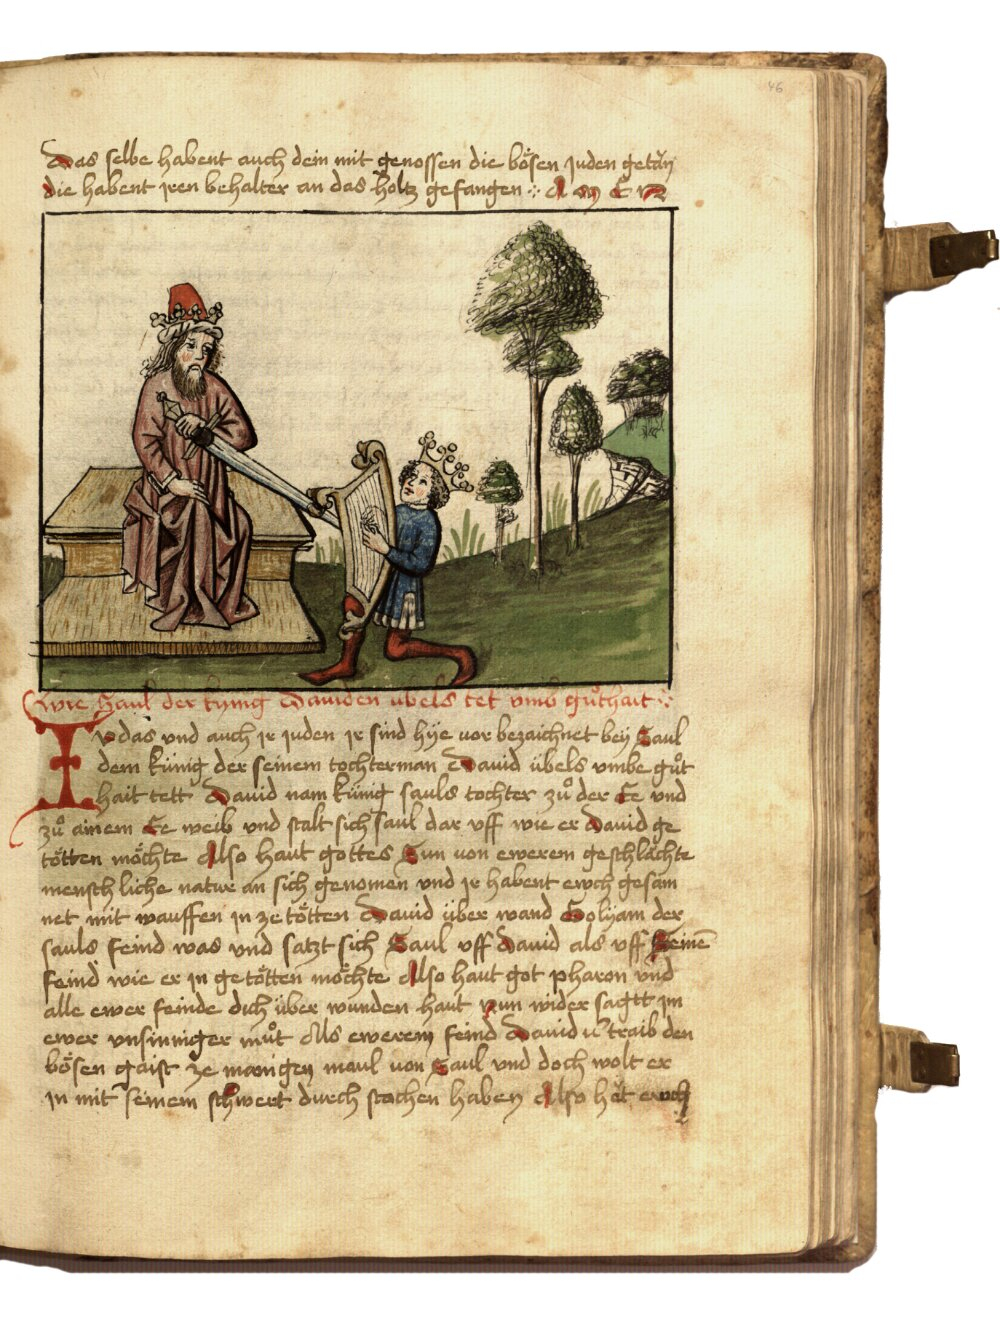 46
Das selbe habent auch dein mit genossen die bösen juden getän
die habent jren behalter an das holtz gefangen ·:· A M E N
Wie Saul der kúnig Dauiden úbels tet vmb gůthait ·:·
IR das vnd auch jr juden jr sind hÿe vor bezaichnet bey Saul
dem kúnig der seinem tochterman Dauid úbels vmbe gůt
hait tett Dauid nam kúnig sauls tochter zů der Ee vnd
zů ainem Ee weib vnd stalt sich saul dar vff wie er Dauid ge
tötten möchte Also haut gottes Sun von ewerem geschlächte
menschliche natur an sich genomen vnd jr habent ewch gesam
net mit wauffen jn ze tötten Dauid úber wand Golyam der
sauls feind was vnd satzt sich Saul vff Dauid als vff seinē
feind wie er jn getötten möchte Also haut got pharon vnd
alle ewer feinde dich úber wunden haut nun wider sagtt jm
ewer vnsinniger můt Als ewerem feind Dauid v̓traib den
bösen gaist ze manigen maul von Saul vnd doch wolt er
jn mit seinem schwert durch stochen haben Also het ewch